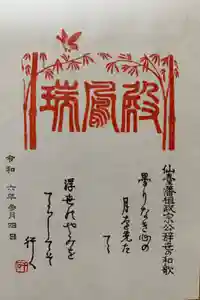 瑞鳳殿
仙臺藩祖政宗公辞世の和歌
曇りなき心の
月を先た
てゝ
浮世のやみを
てらしてそ
行く
令和 六年 月四日